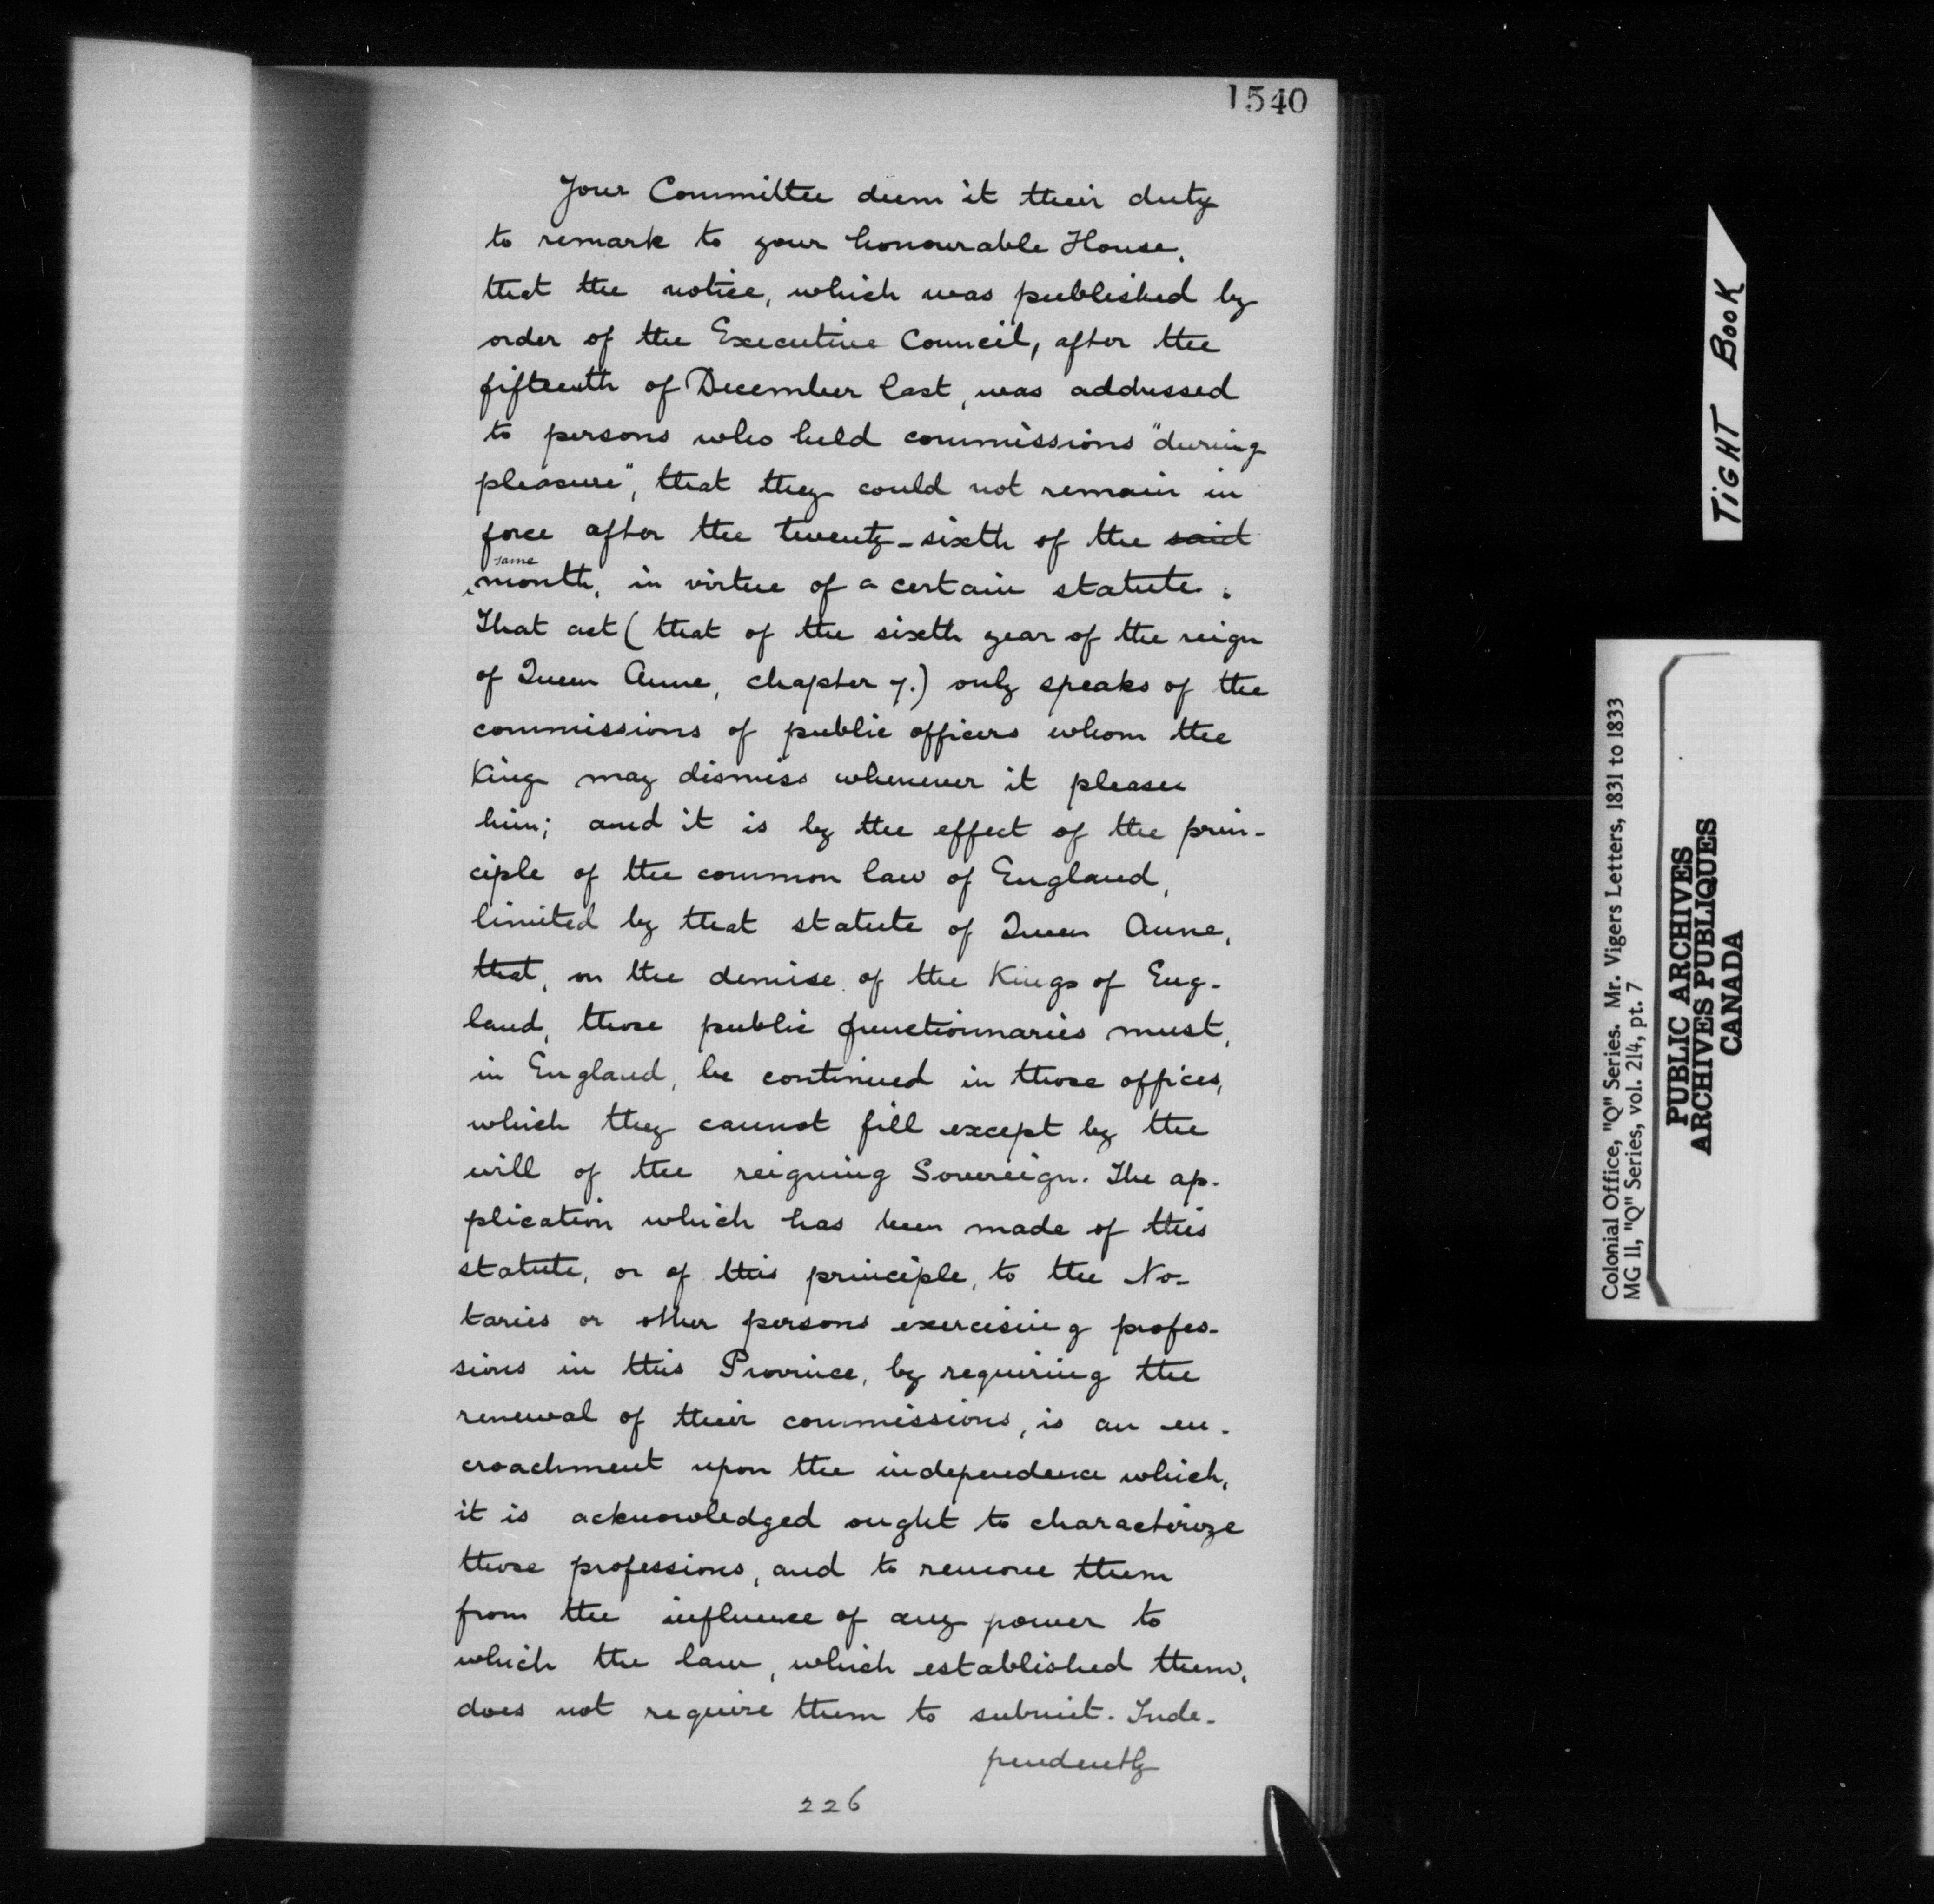 1540
Your Committee deem it their duty
to remark to your honourable House,
that the notice, which was published by
order of the Executive Council, after the
fifteenth of December last, was addressed
to persons who held commissions "during
pleasure", that they could not remain in
force after the twenty-sixth of the said
same
month, in virtue of a certain statute.
That act (that of the sixth year of the reign
of Queen Anne, chapter 7.) only speaks of the
commissions of public officers whom the
King may dismiss whenever it pleases
him; and it is by the effect of the prin-
ciple of the common law of England,
limited by that statute of Queen Anne,
that, on the demise of the Kings of Eng-
land, those public functionnaries must,
in England, be continued in those offices,
which they cannot fill except by the
will of the reigning Sovereign. The ap-
plication which has been made of this
statute, or of this principle, to the No-
taries or other persons exercising profes-
sions in this Province, by requiring the
renewal of their commissions, is an en-
croachment upon the independence which,
it is acknowledged ought to characterize
those professions, and to remove them
from the influence of any power to
which the law, which established them,
does not require them to submit. Inde-
pendently
226
TIGHT BOOK
Colonial Office, "Q" Series. Mr. Vigers Letters, 1831 to 1833
MG 11, "Q" Series, vol. 214, pt. 7
PUBLIC ARCHIVES
ARCHIVES PUBLIQUES
CANADA